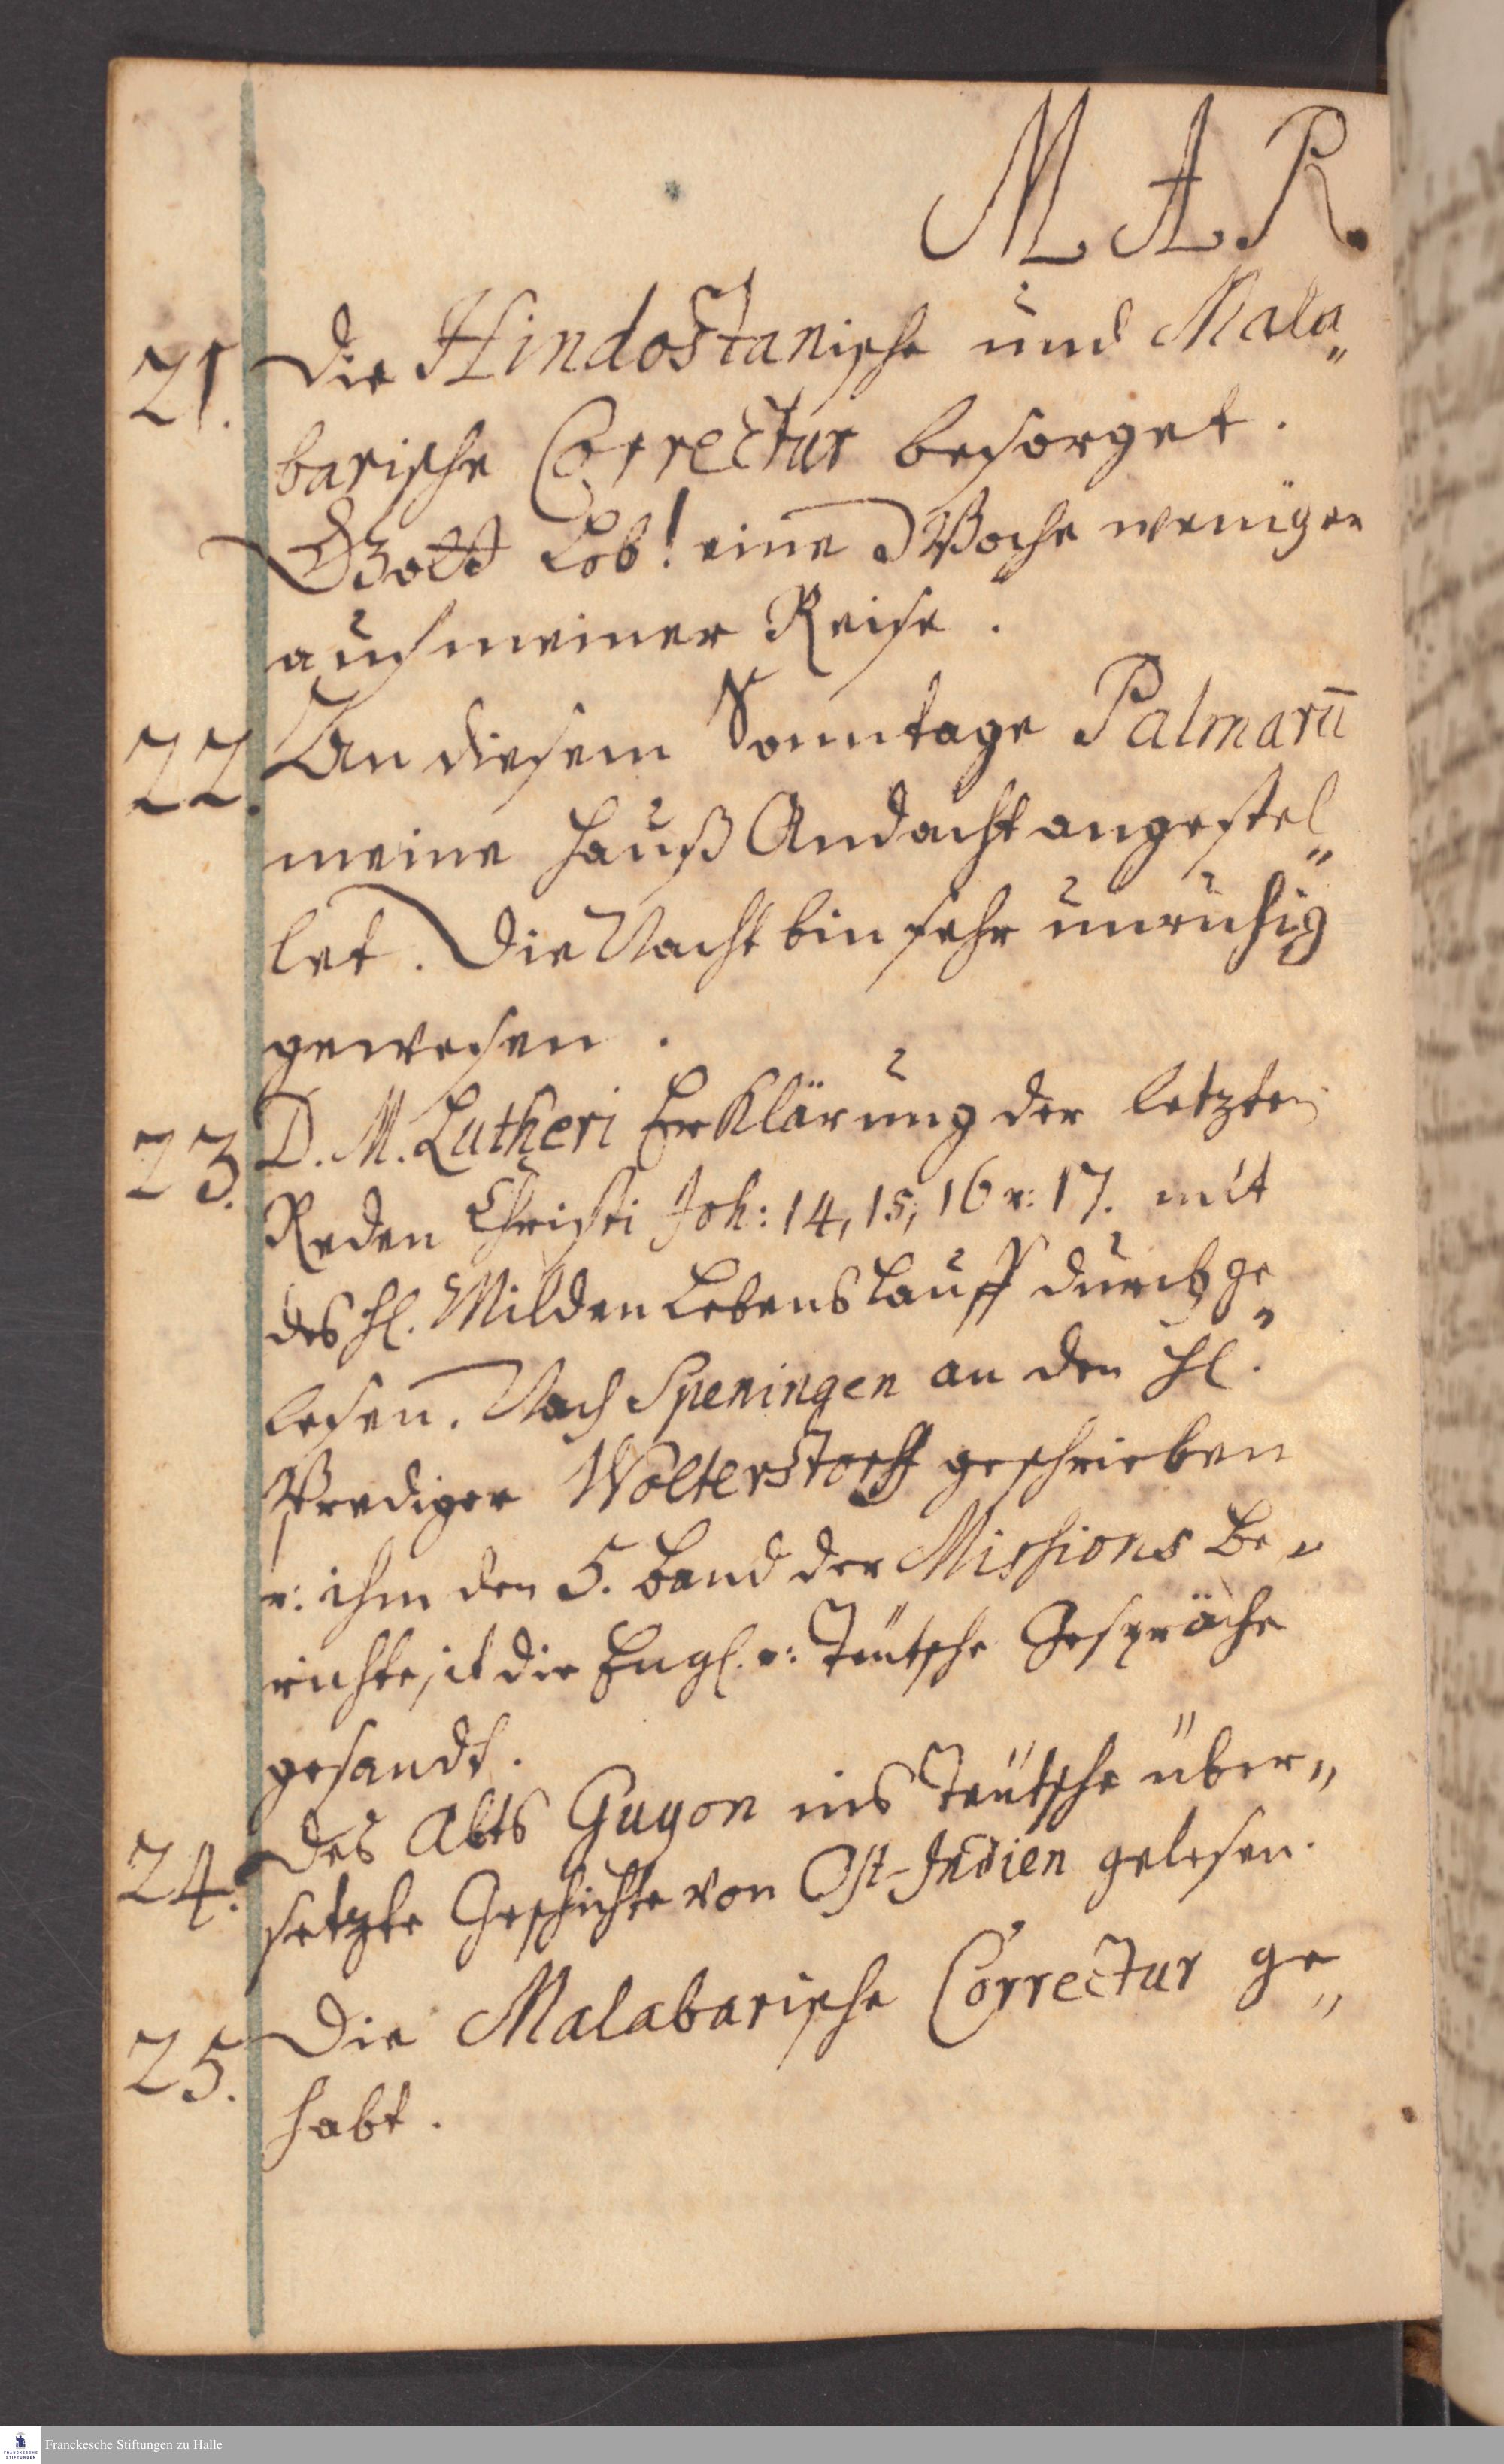 M A R.
21. Die Hindostanische und Mala„
barische Correctur besorget.
Gott Lob! eine Woche weniger
auf meiner Reise.
22. An diesem Sonntage Palmarū
meine Hauß Andacht angestel„
let. Die Nacht bin sehr unruhig
gewesen.
23. D. M. Lutheri Erklärung der letzten
Reden Christi Joh: 14, 15, 16 u: 17. mit
des Hl. Milden Lebenslauff durchge„
lesen. Nach Speningen an den Hl.
Prediger Wolterstorff geschrieben
u: ihm den 5. Band der Missions Be„
richte, it die Engl. u: Teütsche Gespräche
gesandt.
24. Des Abts Guyon ins Teütsche über„
setzte Geschichte von Ost-Indien gelesen.
25. Die Malabarische Correctur ge„
habt.
FRANCKESCHE STIFTUNGEN
Franckesche Stiftungen zu Halle